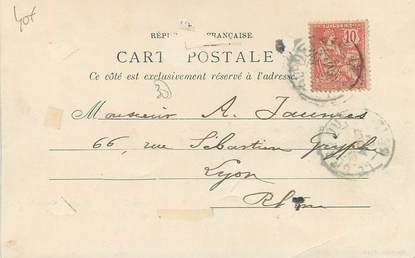 40f
RÉPU FRANÇAISE.
10
CARTE POSTALE
Ce côté est exclusivement réservé à l'adresse
3)
Monsieur A. Jaunes
66, rue Sébastien Gryphe
Lyon
Rhône